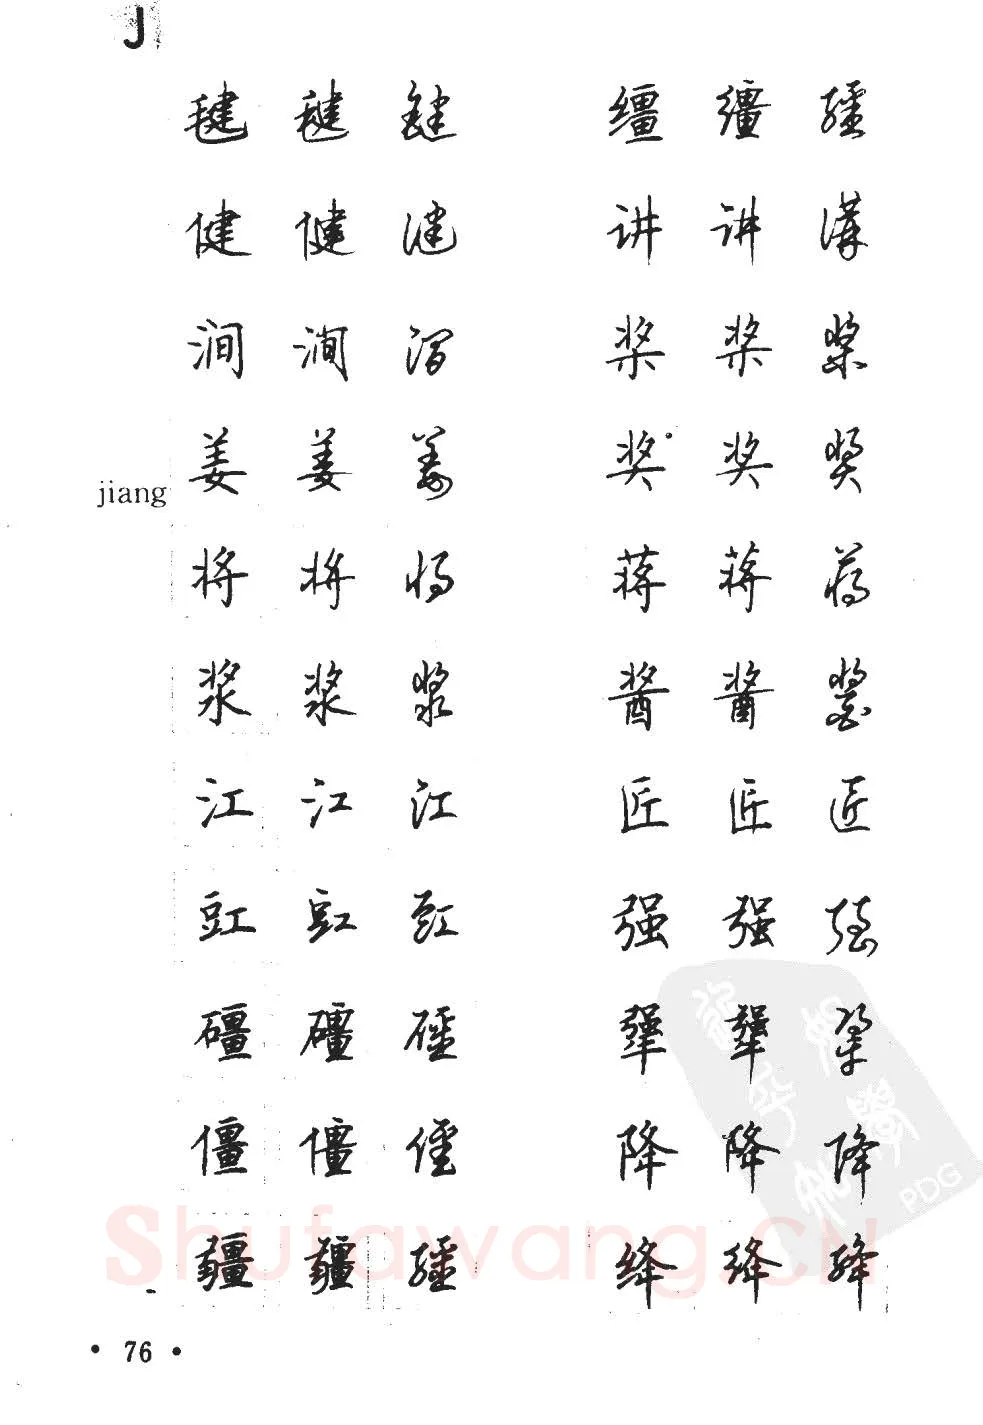 J
毽 毽 毽 缰 缰 缰
健 健 健 讲 讲 講
涧 涧 涧 桨 桨 槳
姜 姜 姜 奖 奖 獎
jiang
将 将 将 蒋 蒋 蔣
浆 浆 漿 酱 酱 醬
江 江 江 匠 匠 匠
豇 豇 豇 强 强 强
礓 礓 礓 犟 犟 犟
僵 僵 僵 降 降 降
疆 疆 疆 绛 绛 絳
Shufawang.CN
PDG
• 76 •